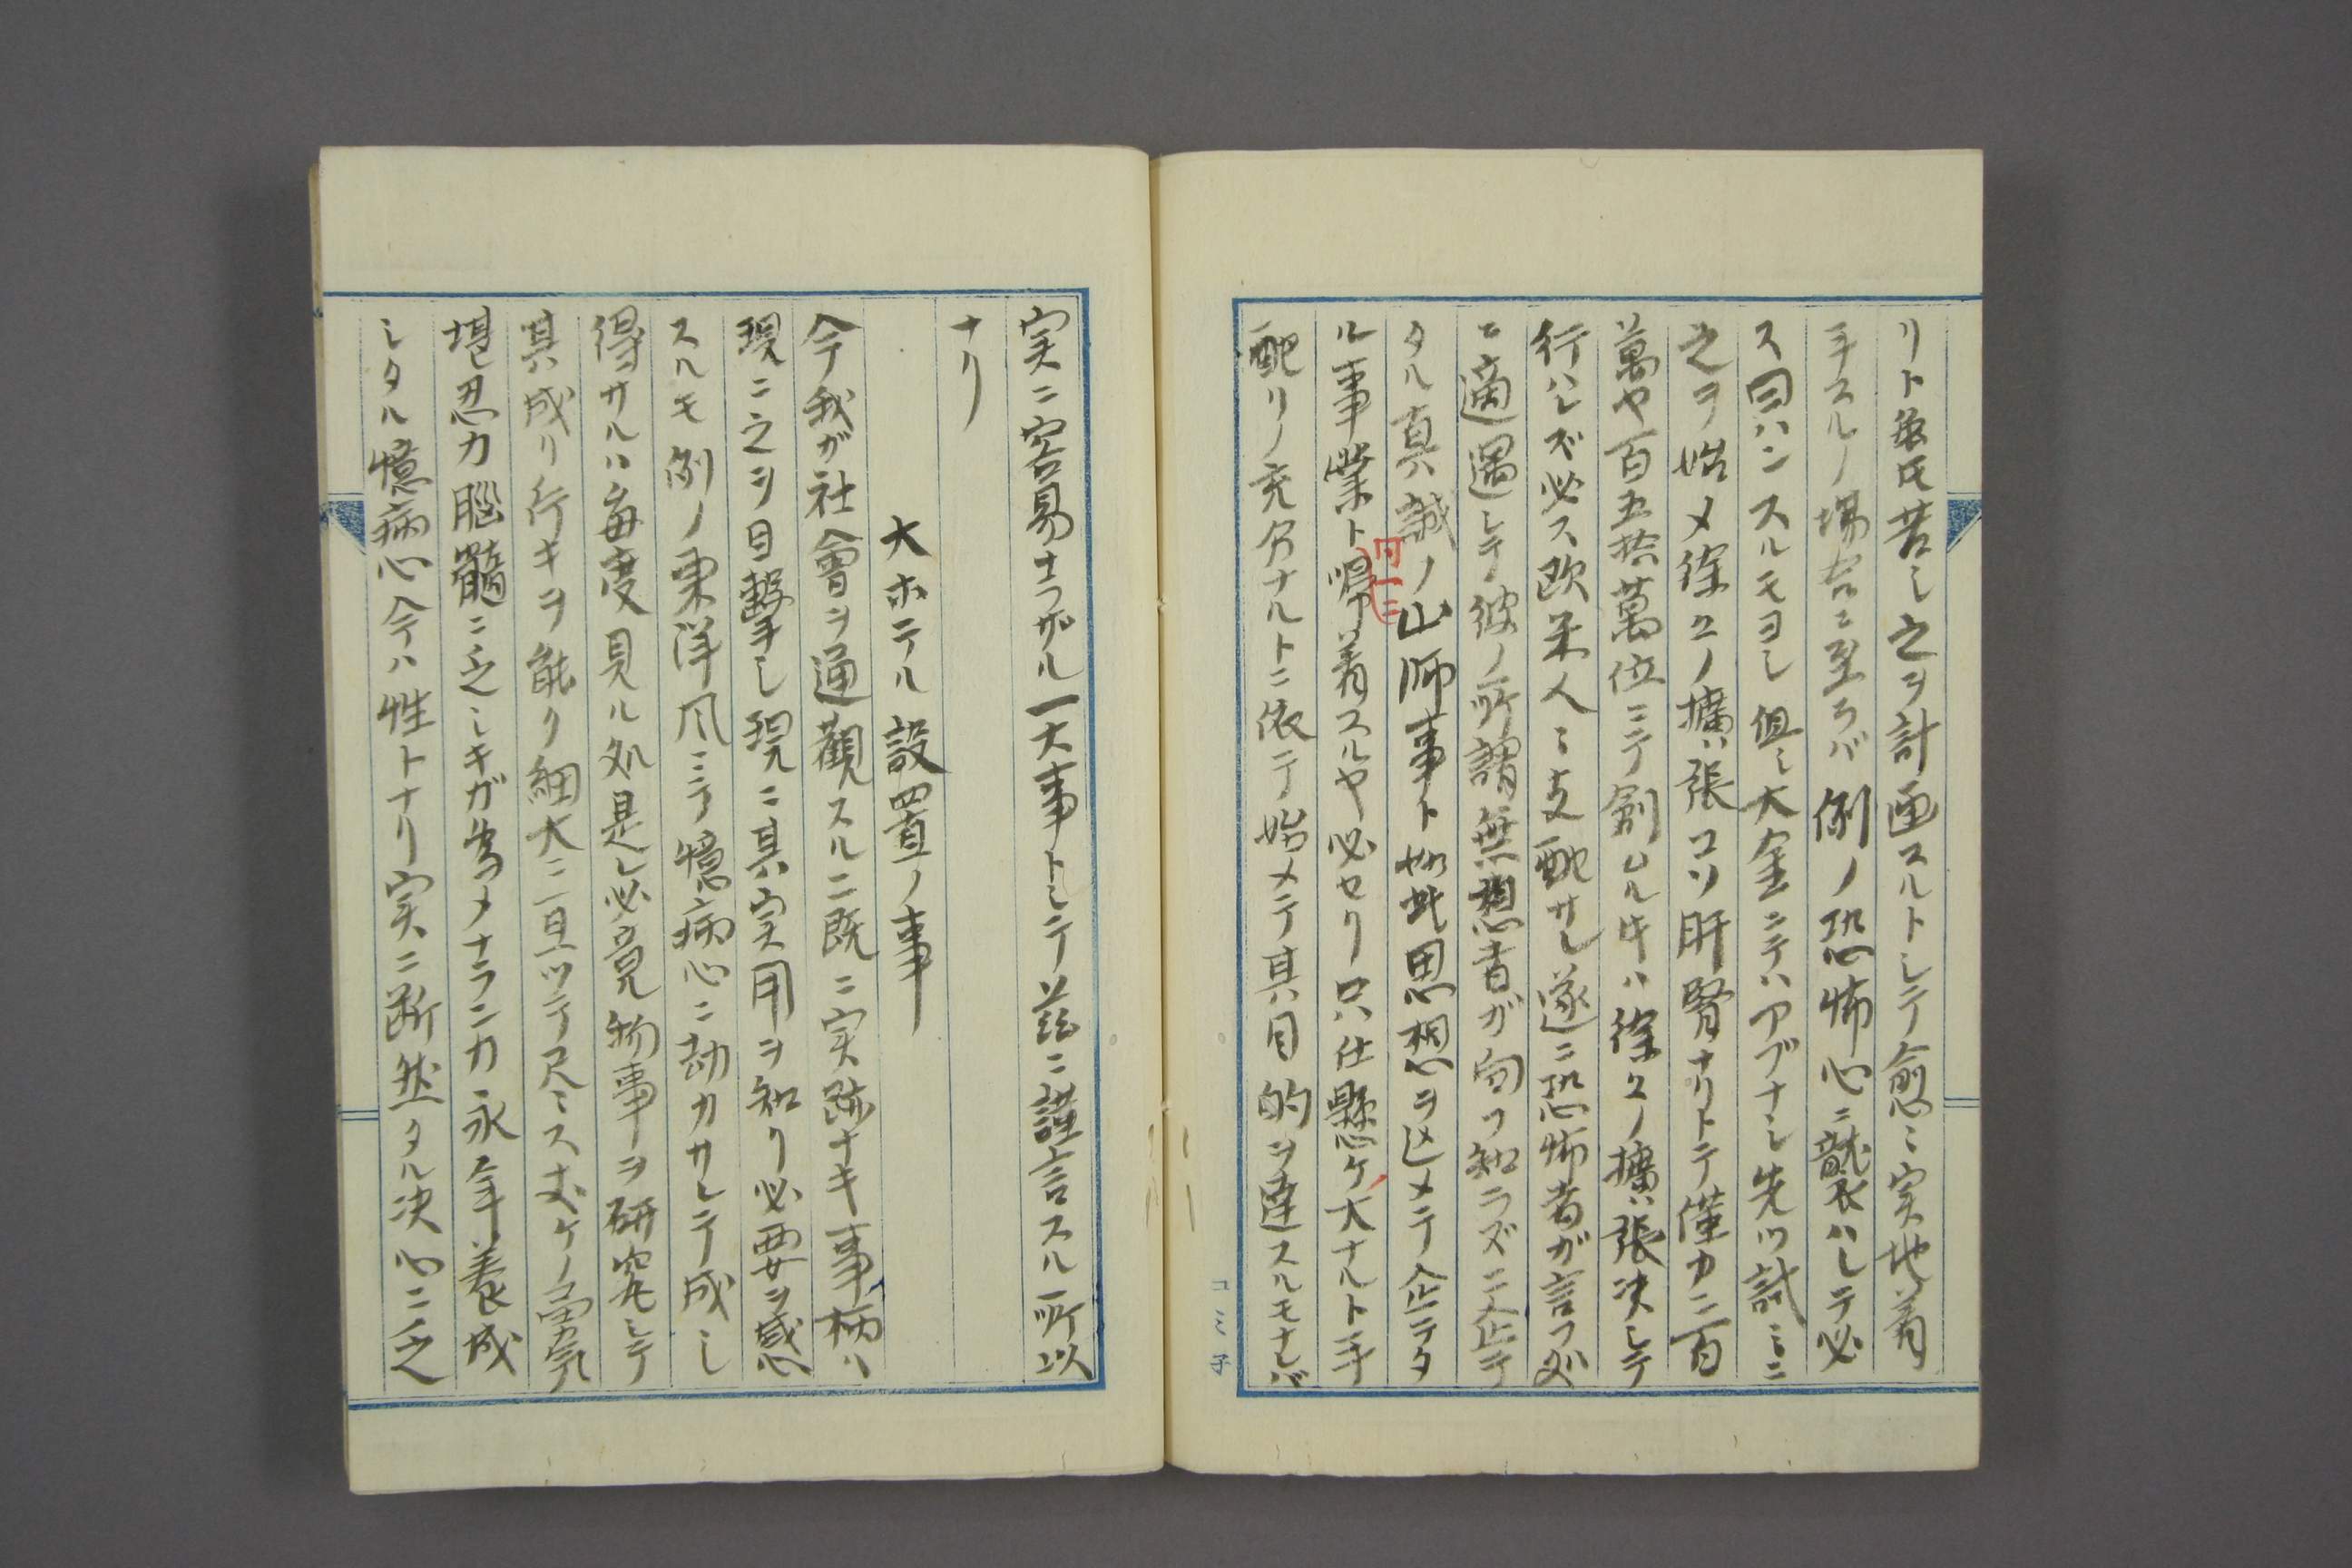 リト雖氏苦シ之ヲ計画スルトシテ愈ミ実地着
手スルノ場合ニ至ラバ例ノ恐怖心ニ襲ハレテ必
ス曰ハンスルモヨシ但シ大金ニテハアブナシ先ツ試ミニ
之ヲ始メ徐々ノ擴張コソ肝腎ナリトテ僅カニ百
萬や百五拾萬位ニテ創ムルキハ徐々ノ擴張决シテ
行ハレズ必ス欧米人ニ支配サレ遂ニ恐怖者ガ言フ処
ニ適遇シテ彼ノ所謂無想者ガ向フ知ラズニ企テ
タル真誠ノ山師事ト如此思想ヲ込メテ企テタ
ル事業ト同一ニ帰着スルヤ必セリ只仕懸ケ大ナルト手
配リノ充分ナルトニ依テ始メテ其目的ヲ達スルモナレバ
コミ子
実ニ容易ナラザル一大事トシテ茲ニ謹言スル所以
ナリ
大ホテル設置ノ事
今我ガ社會ヲ通觀スルニ既ニ実跡ナキ事柄ハ
現ニ之ヲ目撃シ現ニ其実用ヲ知リ必要ヲ感
スルモ例ノ東洋風ニテ憶病心ニ劫カサレテ成シ
得サルハ毎度見ル処是レ必竟物事ヲ研究シテ
其成リ行キヲ能ク細大ニ亘ツテ尽ミス丈ケノ勇氣
堪忍力脳髓ニ乏シキガ為メナランカ永年養成
シタル憶病心今ハ性トナリ実ニ断然タル决心ニ乏